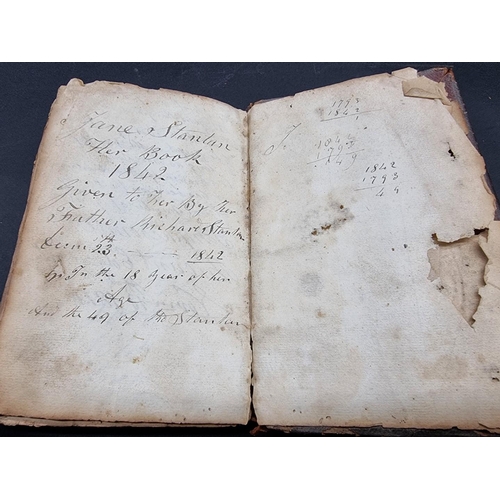 Jane Stanlun
Her Book
1842
Given to her By her
Father Richard Stanlun
Decm 23th 1842
In the 18 year of her
Age
And the 49 of Stanlun
1792
1842
1
J
1842
1793
49
1842
1793
49